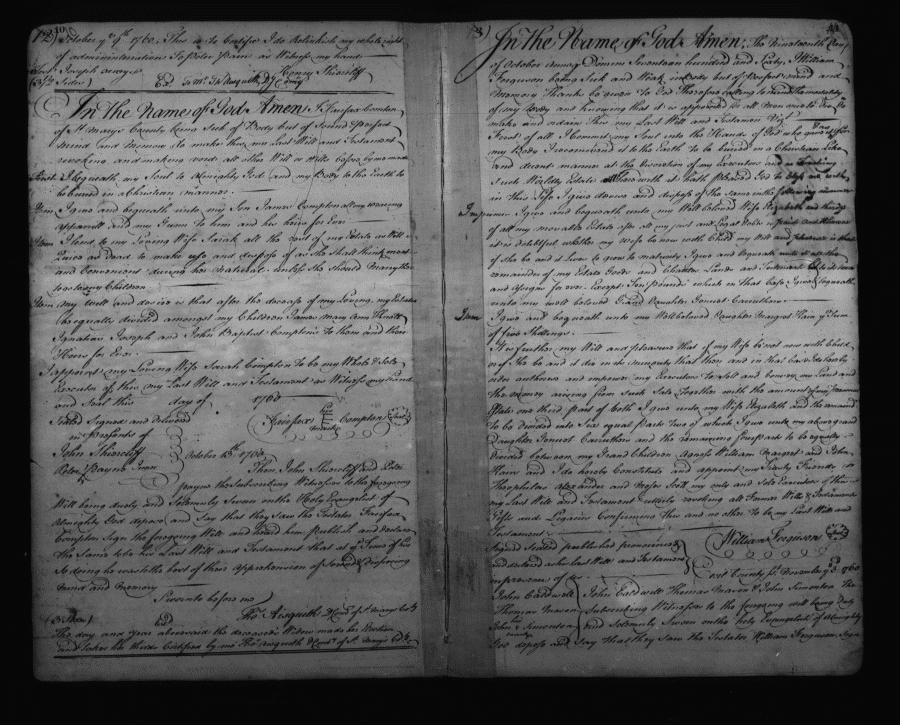 October ye 9th 1760. This is to Certifie I do Relinkish my whole right
of administration To Peter Pain as Witness my hand
Test. Joseph
Henry Thoroliff
In the Name of God Amen, I Fairfax Compton
of St. Marys County being Sick of Body but of Sound & Perfect
mind and memory do make this my Last Will and Testament
revoking and making void all other Will or Wills before by me made
First I bequeath my Soul to Almighty God and my Body to the Earth to
be buried in a Christian manner.
Item I give and bequeath unto my Son James Compton all my wearing
apparell and my Gunn to him and his heirs for Ever
Item I lend to my Loving Wife Sarah all the rest of my Estate as Well
Quick as Dead to make use and dispose of as She shall think most
and Convenient during her Natural unless She Should Marry then
to go to my Children
Item my will and desire is that after the decease of my Loving, my Estate
be equally divided amongst my Children James Mary Ann Henritt
Ignatius Joseph and John Baptist Compton to them and their
Heirs for Ever.
I appoint my Loving Wife Sarah Compton to be my Whole & Sole
Executor of this my Last Will and Testament as Witness my Hand
and Seal this day of 1760
Sealed Signed and Delivered
in Presents of
Fairfax Compton Seal
John Thoroliff
Peter Payne
October 15th 1760
Then John Thoroliff and Peter
Payne the Subscribing Witnesses to the foregoing
Will being duely and Solemnly Sworn on the Holy Evangelist of
Almighty God depose and Say that they Saw the Testator Fairfax
Compton Sign the foregoing Will and heard him Publish and declare
the Same to be his Last Will and Testament that at ye Time of his
So doing he was to the best of their Apprehension of Sound & disposing
mind and memory
Sworn to before me
Thos Aisquith
The day and year aforesaid the deceased's Widow made her Election
and takes her thirds Certified by me Thos Aisquith
In the Name of God Amen, The Nineteenth Day
of October Annoq Domini Seventeen hundred and Sixty, I William
Ferguson being Sick and Weak in Body but of Perfect mind and
Memory Thanks be given to God Therefore calling to mind the mortality
of my Body and knowing that it is appointed for all men once to Die Do
make and ordain this my Last Will and Testament Vizt
First of all I Commit my Soul into the Hands of God who gave it and
my Body I recommend it to the Earth to be buried in a Christian like
and decent manner at the discretion of my Executors and as touching
Such Worldly Estate wherewith it hath pleased God to bless me with
in this Life I give devise and dispose of the Same in the following manner
Imprimis I give and bequeath unto my Well beloved Wife Elizabeth one third
of all my movable Estate after all my just and Legal Debts is paid and Whereas
it is doubtful whether my Wife be now with Child my Will and pleasure is that
if she be and it Lives to grow to maturity I give and bequeath unto it all the
remainder of my Estate Goods and Chattles Lands and Tenements
and assigns for ever Except Ten Pounds which in that Case I give & bequeath
unto my well beloved Grand Daughter Jennet Carruthers
Item I give and bequeath unto my Well beloved Daughter Margret Hain ye Sum
of five Shillings.
It is further my Will and pleasure that if my Wife be not now with Child
or if She be and it die in its minority that then and in that Case I do hereby
order authorize and empower my Executors To Sell and Convey my Land and
the money arising from such Sale Together with the amount of my
Estate one third part of both I give unto my Wife Elizabeth and the remaind
to be divided into Six equal Parts Two of which I give unto my aforesaid
Daughter Jennet Carruthers and the remaining four parts to be equally
Divided between my Grand Children Agness William Margret and John
Hains and I do hereby Constitute and appoint my Trusty Friends
Theophelus Alexander and Moses Scott my only and Sole Executors of this
my Last Will and Testament utterly revoking all Former Wills & Testaments
Gifts and Legacies Confirming this and no other To be my Last Will and
Testament
Signed Sealed published pronounced
and declared as his Last Will and Testament
in presence of us
William Ferguson
Cecil County Sc. November ye 3d 1760
John Caldwell
Thomas Maven
John Simonton
John Caldwell Thomas Maven & John Simonton The
Subscribing Witnesses to the foregoing will being Duly
and Solemnly Sworn on the holy Evangelist of Almighty
God depose and Say that they Saw the Testator William Ferguson Sign